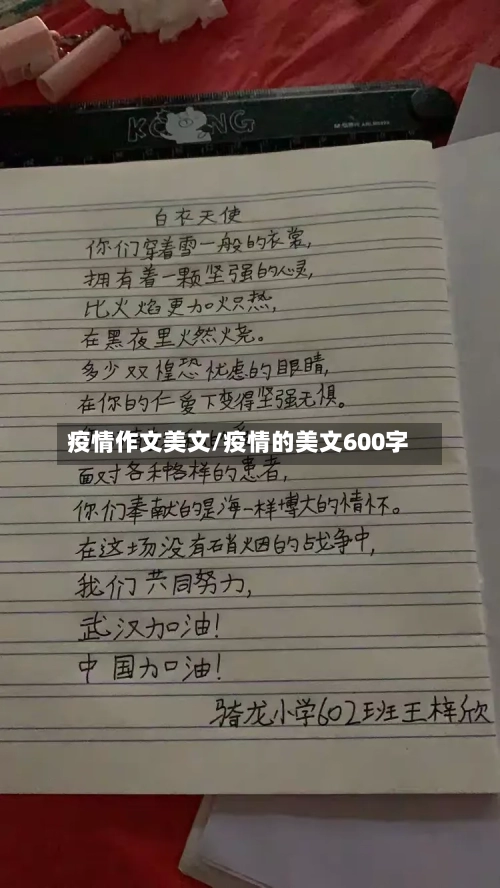 KONG
白衣天使
你们穿着雪一般的衣裳,
拥有着一颗坚强的心灵,
比火焰更加火只热,
在黑夜里火然烧。
多少双惶恐忧虑的眼睛,
在你的仁爱下变得坚强无惧。
疫情作文美文/疫情的美文600字
面对各种各样的患者,
你们奉献的是海一样博大的情怀。
在这场没有硝烟的战争中,
我们共同努力,
武汉加油!
中国加油!
骑龙小学602班王梓欣